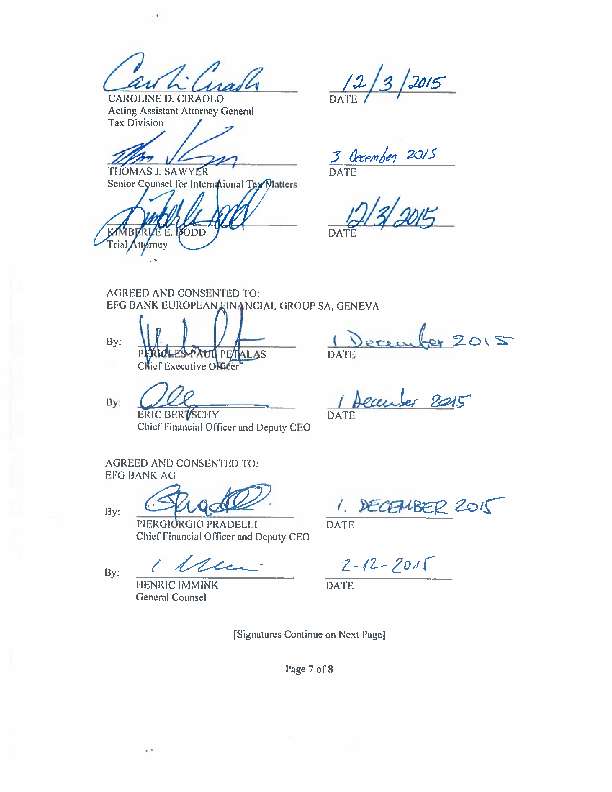 12/3/2015
CAROLINE D. CIRAOLO DATE
Acting Assistant Attorney General
Tax Division
3 December 2015
THOMAS J. SAWYER DATE
Senior Counsel for International Tax Matters
12/3/2015
KIMBERLE E. DODD DATE
Trial Attorney
AGREED AND CONSENTED TO:
EFG BANK EUROPEAN FINANCIAL GROUP SA, GENEVA
By: 1 December 2015
PERICLES PAUL PETALAS DATE
Chief Executive Officer
By: 1 December 2015
ERIC BERTSCHY DATE
Chief Financial Officer and Deputy CEO
AGREED AND CONSENTED TO:
EFG BANK AG
By: 1. DECEMBER 2015
PIERGIORGIO PRADELLI DATE
Chief Financial Officer and Deputy CEO
By: 2-12-2015
HENRIC IMMINK DATE
General Counsel
[Signatures Continue on Next Page]
Page 7 of 8